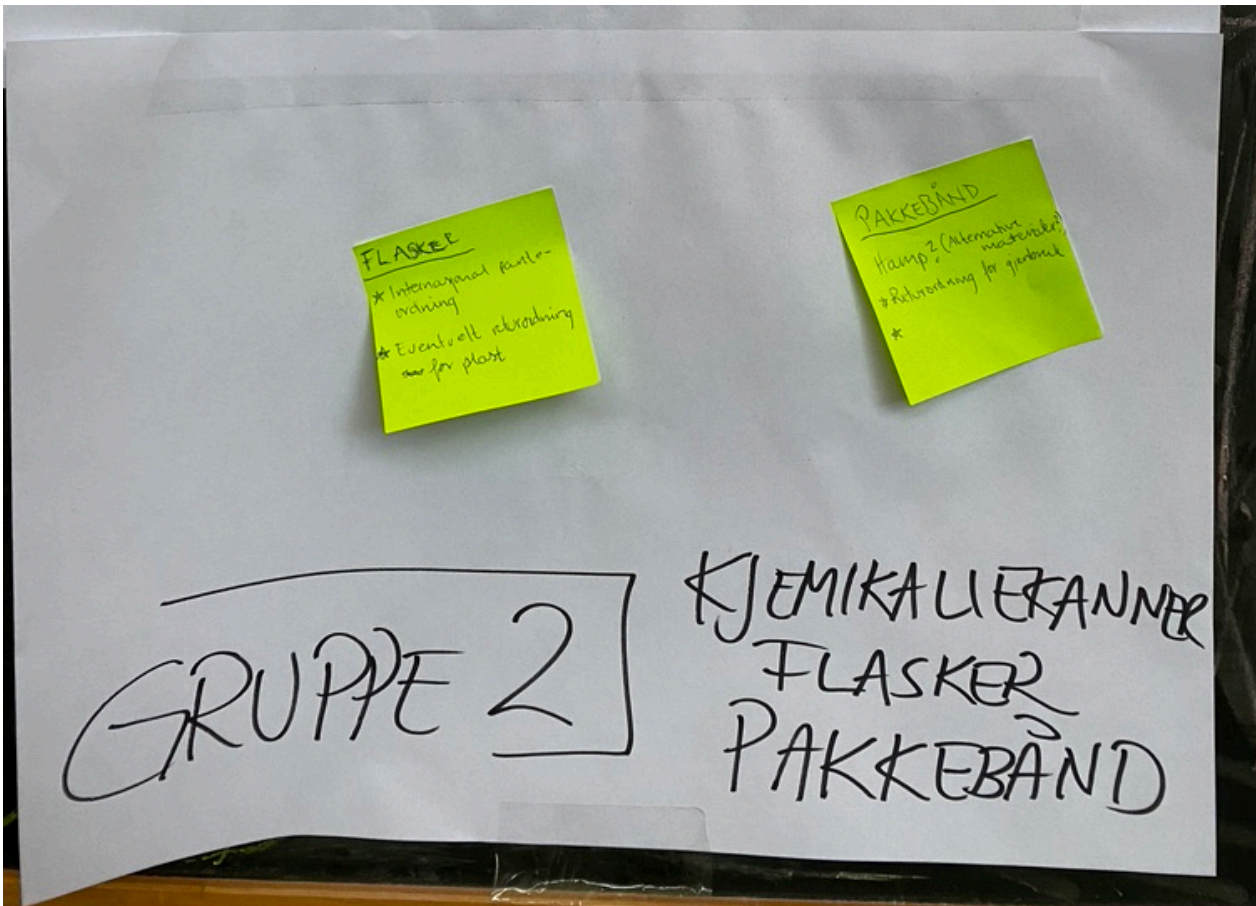 FLASKER
* Internasjonal pante-
ordning
* Eventuelt returordning
for plast
PAKKEBÅND
Hamp? (Alternative
materialer?)
* Returordning for gjenbruk
*
GRUPPE 2
KJEMIKALIEKANNER
FLASKER
PAKKEBÅND